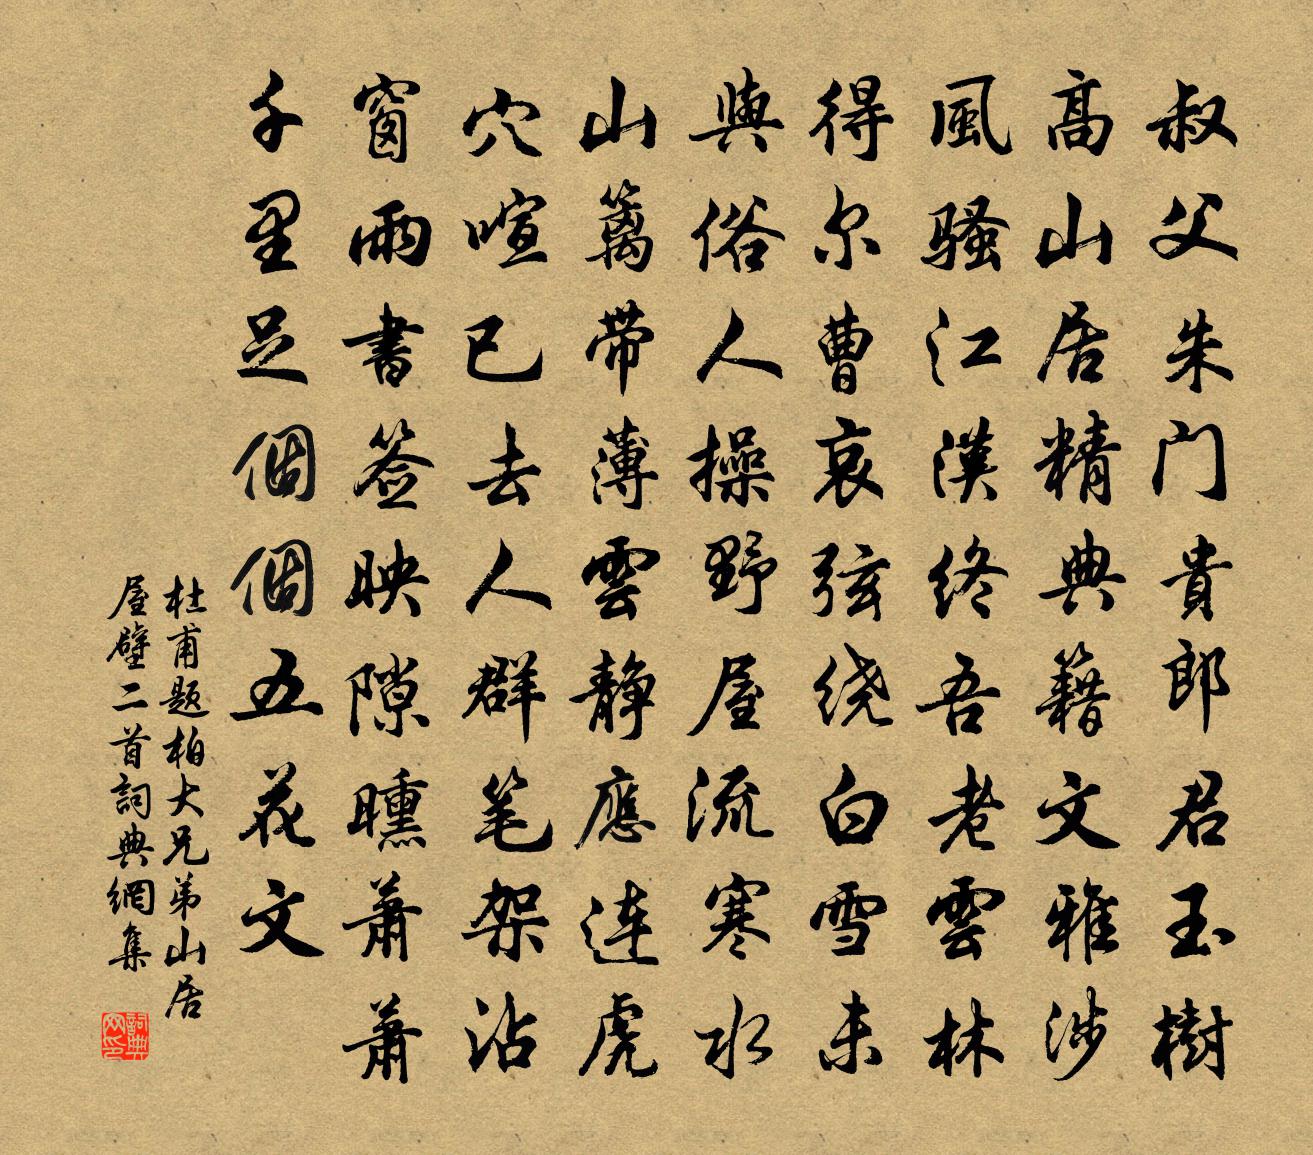 叔父朱门貴郎君玉樹
高山居精典籍文雅涉
風骚江漢终吾老雲林
得尔曹哀弦绕白雪未
與俗人操野屋流寒水
山籬带薄雲静應连虎
穴喧已去人群笔架沾
窗雨書签映隙曛萧萧
千里足個個五花文
杜甫题柏大兄弟山居
屋壁二首詞典網集
詞典网印